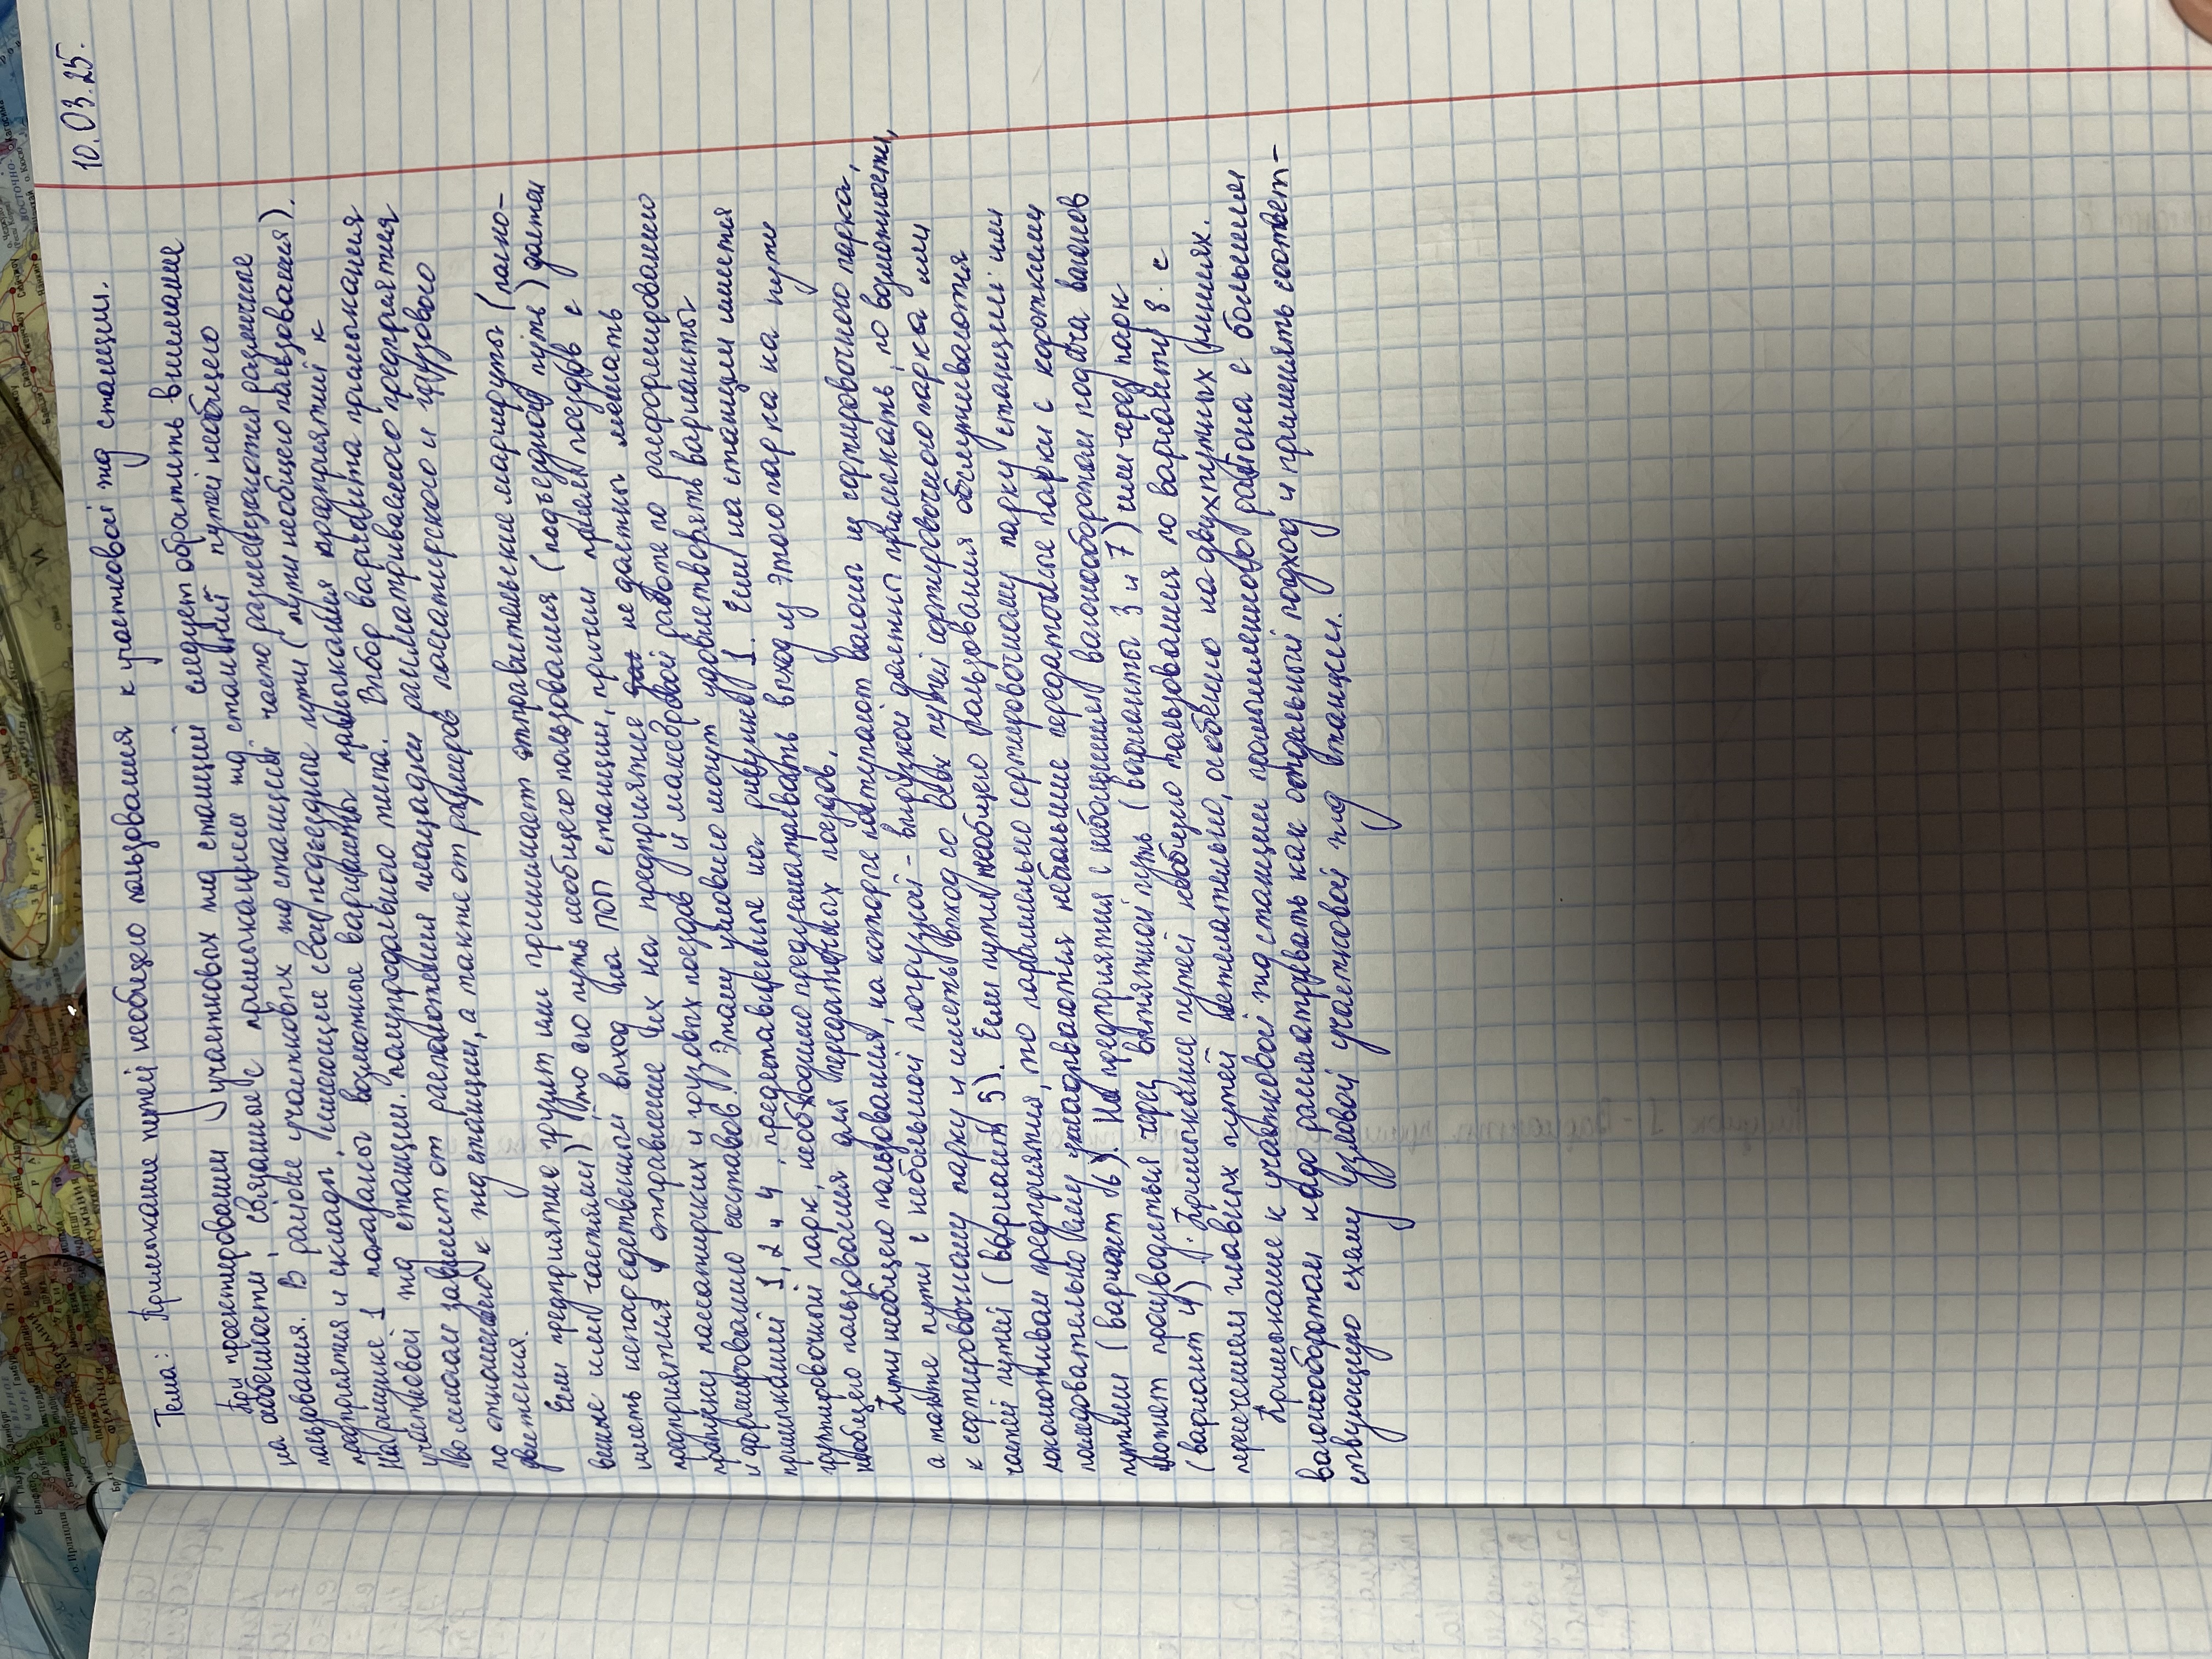 10.03.25.
Тема: Примыкание путей необщего пользования к участковой жд станции.
При проектировании участковых жд станций следует обратить внимание
на особенности, связанные с примыканием жд станций путей необщего
пользования. В районе участковых жд станций часто размещаются различные
предприятия и склады, имеющие свои подъездные пути (пути необщего пользования).
На рисунке 1 показаны возможные варианты примыкания предприятий к
участковой жд станции полупродольного типа. Выбор варианта примыкания
во многом зависит от расположения площадки рассматриваемого предприятия
по отношению к жд станции, а также от размеров пассажирского и грузового
движения.
Если предприятие грузит или принимает отправительские маршруты (полно-
весные или частями), то его путь необщего пользования (подъездной путь) должен
иметь непосредственный вход на ПОП станции, причем прием поездов с
предприятия и отправление их на предприятие не должны мешать
пропуску пассажирских и грузовых поездов и маневровой работе по расформированию
и формированию составов. Этому условию могут удовлетворять варианты
примыканий 1, 2 и 4, представленные на рисунке 1. Если на станции имеется
группировочный парк, необходимо предусматривать выход из этого парка на пути
необщего пользования для передаточных поездов.
Пути необщего пользования, на которые поступают вагоны из сортировочного парка,
а также пути с небольшой погрузкой - выгрузкой должны примыкать, по возможности,
к сортировочному парку и иметь выход со всех путей сортировочного парка или
частей путей (вариант 5). Если пути необщего пользования обслуживаются
локомотивом предприятия, то параллельно сортировочному парку станции или
последовательно ему укладываются небольшие передаточные парки с короткими
путями (вариант 6). На предприятия с небольшим вагонооборотом подача вагонов
может производиться через вытяжной путь (варианты 3 и 7) или через парк
(вариант 4). Примыкание путей необщего пользования по варианту 8 с
пересечением главных путей нежелательно, особенно на двухпутных линиях.
Примыкание к участковой жд станции промышленного района с большим
вагонооборотом надо рассматривать как отдельный подход и применять соответ-
ствующую схему узловой участковой жд станции.